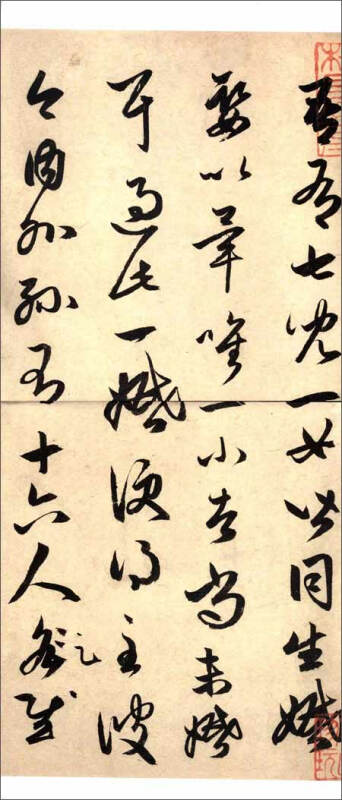 吾有七兒一女皆同生婚
娶以畢唯一小者尚未婚
耳過此一婚便得至彼
今內外孫有十六人足慰